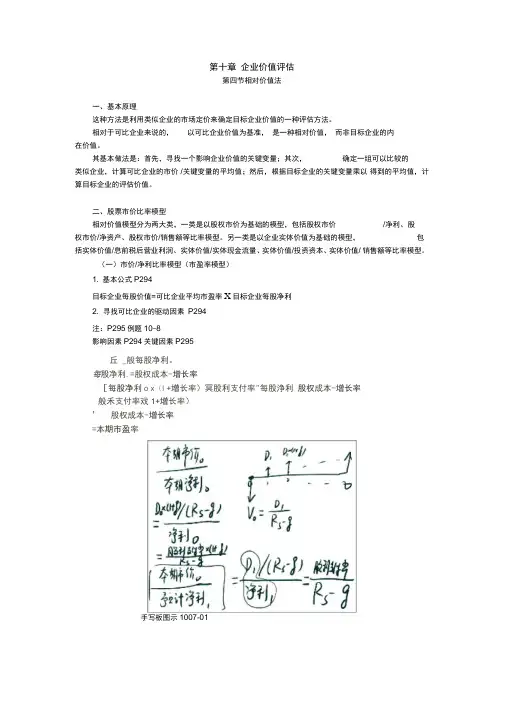 第十章 企业价值评估
第四节相对价值法
一、基本原理
这种方法是利用类似企业的市场定价来确定目标企业价值的一种评估方法。
相对于可比企业来说的， 以可比企业价值为基准， 是一种相对价值， 而非目标企业的内
在价值。
其基本做法是：首先，寻找一个影响企业价值的关键变量；其次， 确定一组可以比较的
类似企业，计算可比企业的市价 /关键变量的平均值；然后，根据目标企业的关键变量乘以 得到的平均值，计
算目标企业的评估价值。
二、股票市价比率模型
相对价值模型分为两大类，一类是以股权市价为基础的模型，包括股权市价 /净利、股
权市价/净资产、股权市价/销售额等比率模型。另一类是以企业实体价值为基础的模型， 包
括实体价值/息前税后营业利润、实体价值/实体现金流量、实体价值/投资资本、实体价值/ 销售额等比率模型。
（一）市价/净利比率模型（市盈率模型）
1. 基本公式P294
目标企业每股价值=可比企业平均市盈率X目标企业每股净利
2. 寻找可比企业的驱动因素 P294
注：P295例题10-8
影响因素P294关键因素P295
丘 _般每股净利。
毎股净利.=股权成本-增长率
[每股净利o x（l+增长率）冥股利支付率"每股浄利 股权成本-增长率
般禾支付率戏1+增长率）
' 股权成本-增长率
=本期市盈率
本期市价0
本期净利0
= D0×(1+g)/(Rs-g)
净利0
= 股利支付率×(1+g)
Rs-g
D1 D1×(1+g)
0 1 2 - - ∞
V0 = D1
Rs-g
本期市价0
预计净利1
= D1/(Rs-g)
净利1
= 股利支付率
Rs-g
手写板图示1007-01